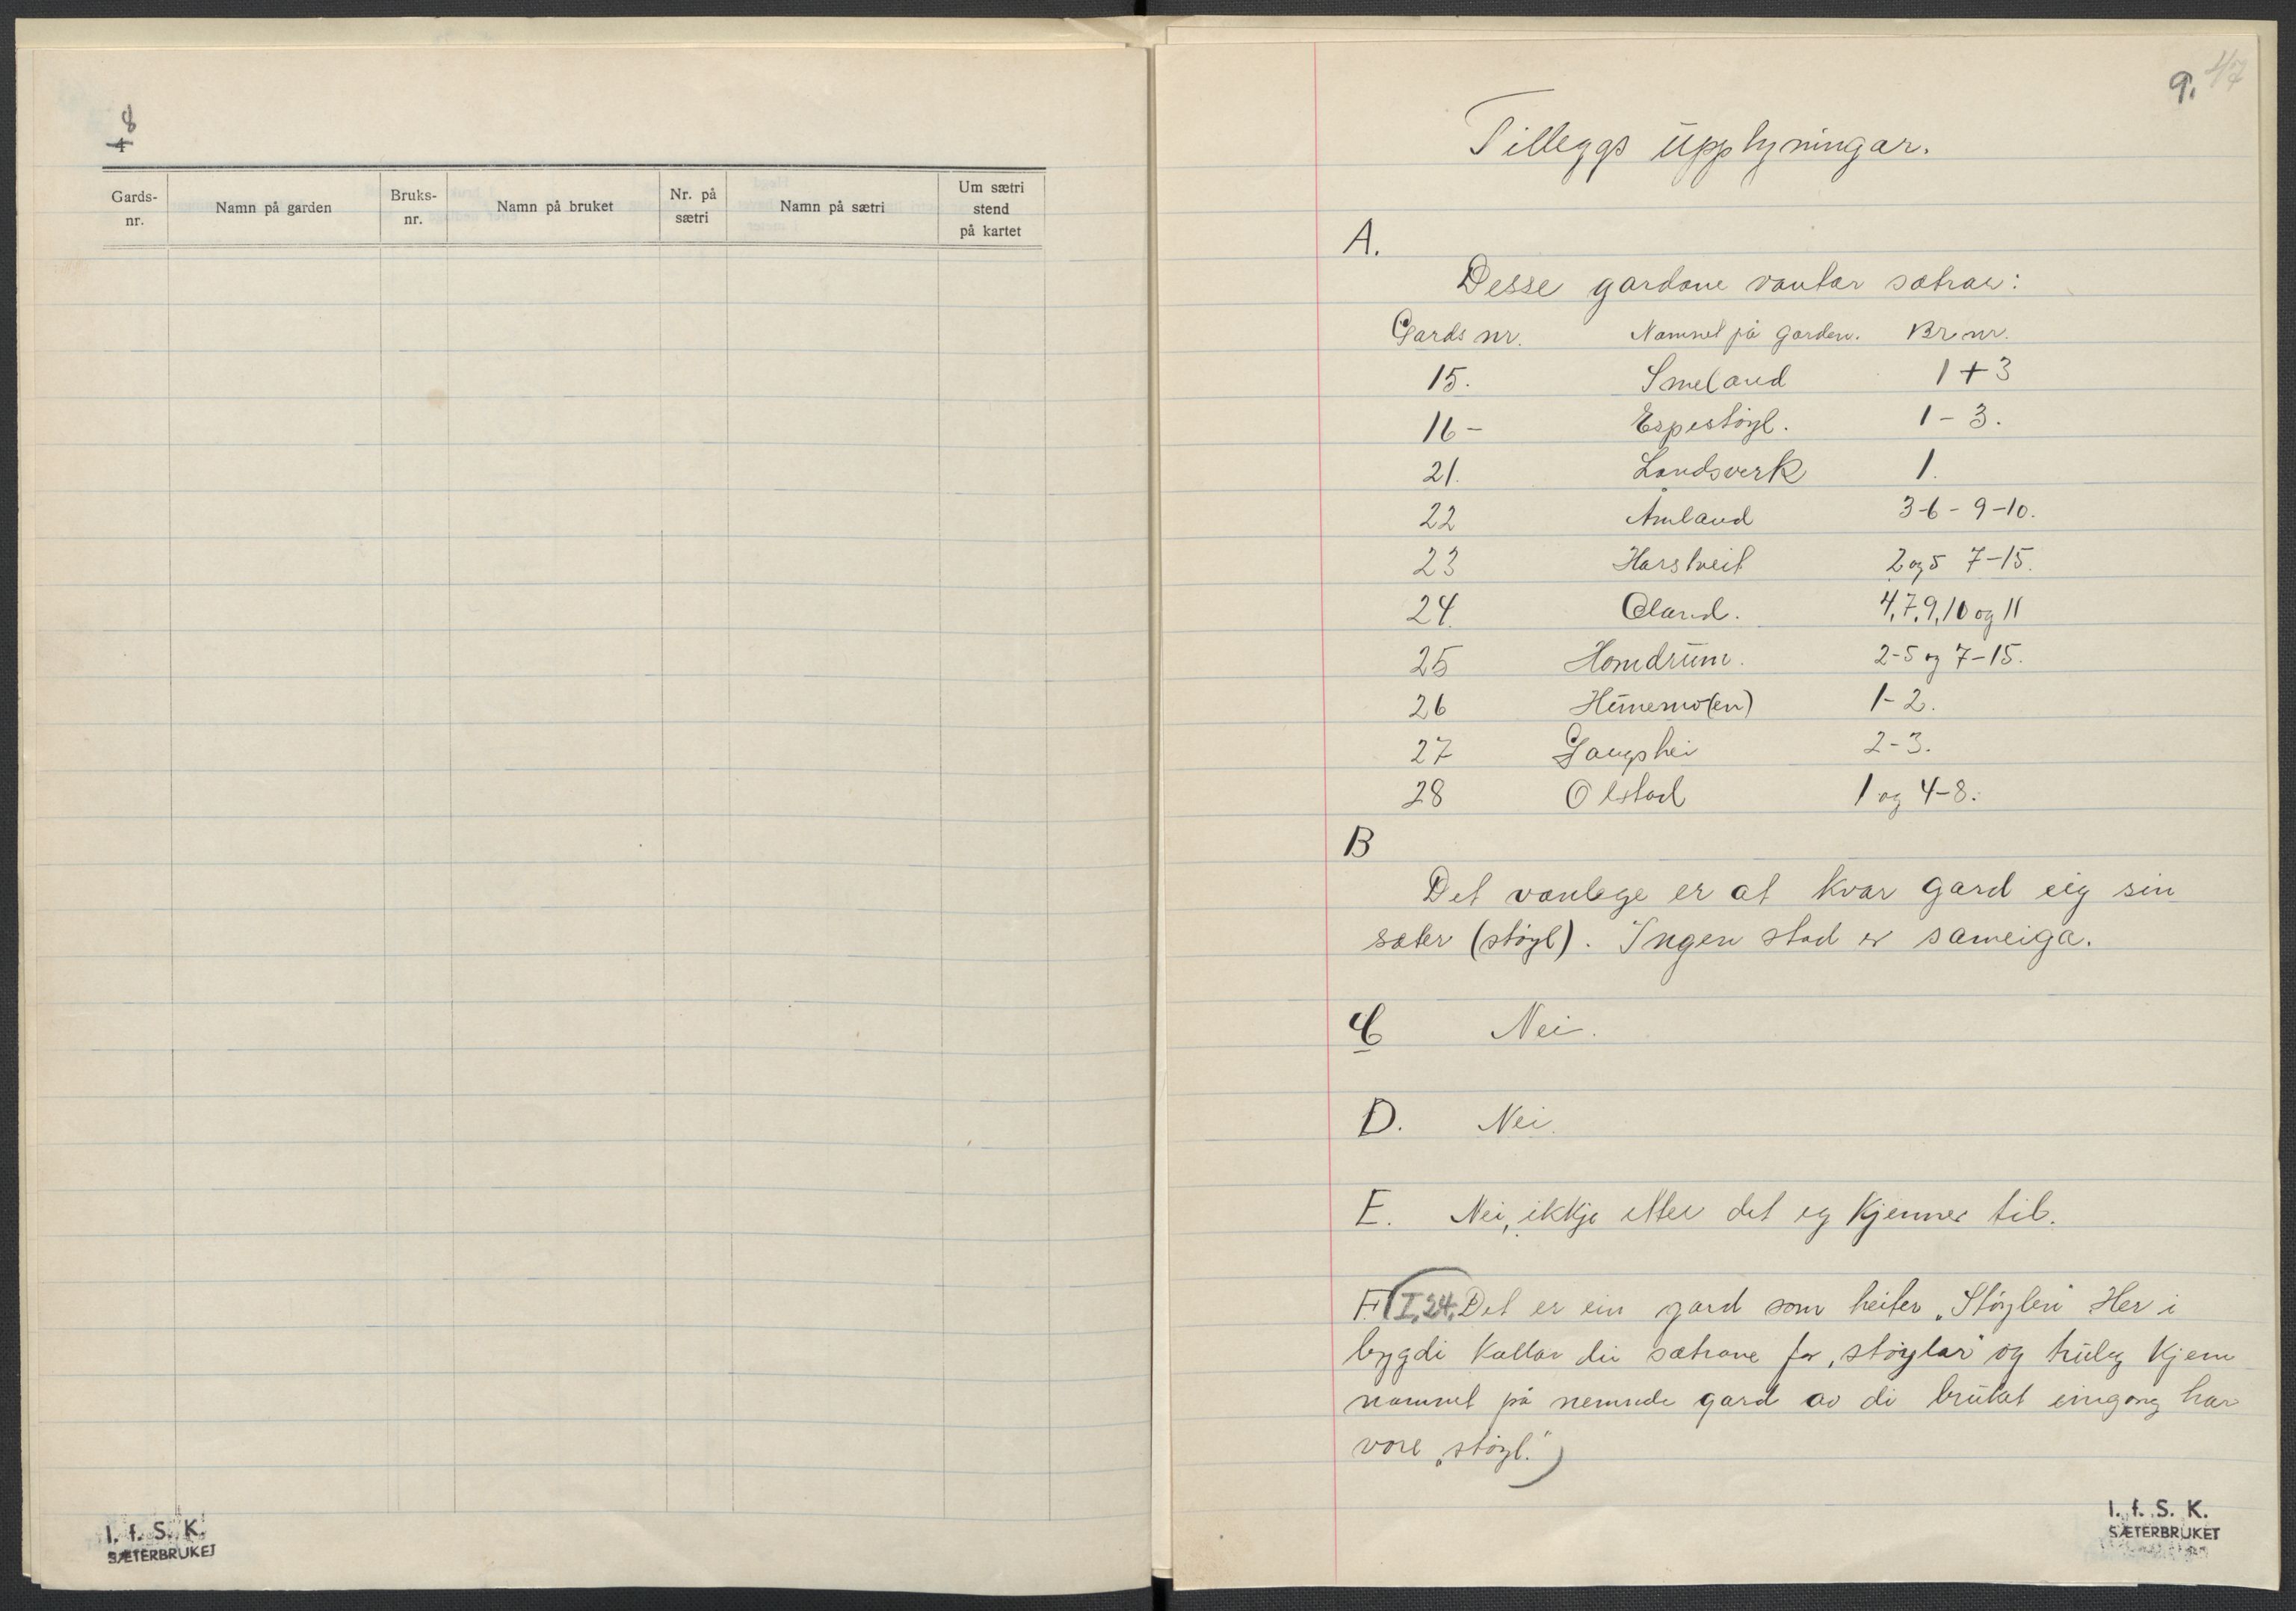 8
4
Gards-
nr.
Namn på garden
Bruks-
nr.
Namn på bruket
Nr. på
sætri
Namn på sætri
Um sætri
stend
på kartet
I. f. S. K.
SÆTERBRUKET
9. 47
Tilleggs upplyningar.
A.
Desse gardane vantar sætrar:
Gards nr. Namnet på garden. Br nr.
15. Smeland 1 + 3
16 - Espestøyl. 1 - 3.
21. Landsverk 1.
22 Åmland 3-6 - 9-10.
23 Harstveit 2 og 5 7-15.
24. Øland. 4, 7, 9, 10 og 11
25 Homdrum. 2-5 og 7-15.
26 Hunemo(en) 1- 2.
27 Gaugshei 2-3.
28 Olstad 1 og 4-8.
B
Det vanlege er at kvar gard eig sin
sæter (støyl). Ingen stad er sameiga.
C Nei.
D. Nei.
E. Nei, ikkje etter det eg kjenner til.
F. (I, 24. Det er ein gard som heiter „Støylen" Her i
bygdi kallar dei sætrane for „støylar" og truleg kjem
namnet på nemnde gard av di bruket eingong har
vore „støyl.")
I. f. S. K.
SÆTERBRUKET